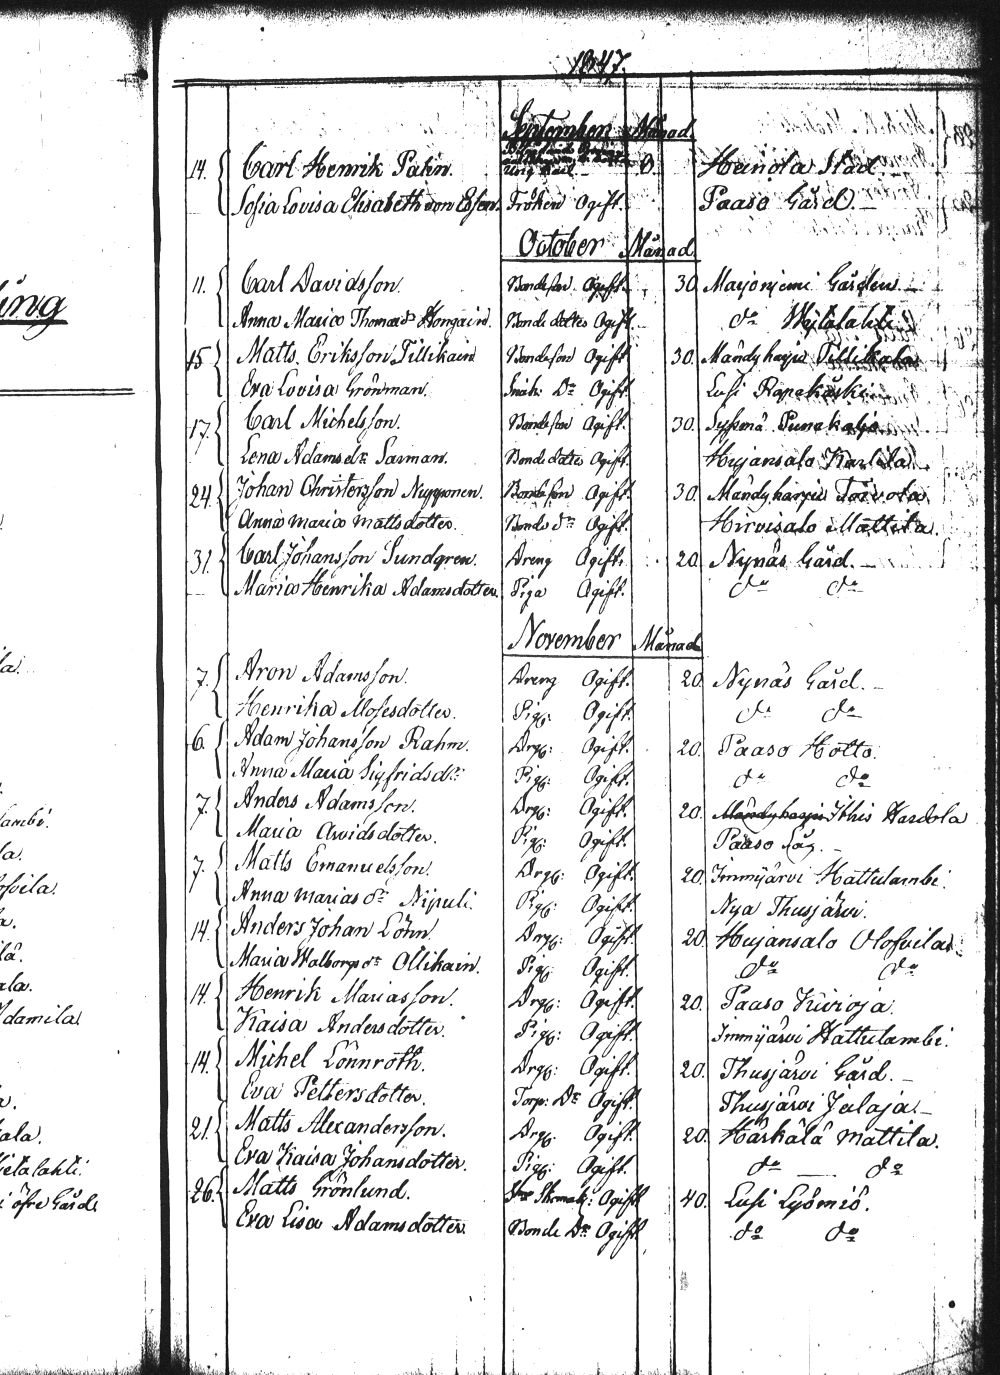 1847.
September Månad.
14. Carl Henrik Palm. Ung Karl 0 Heinola Stad
Sofia Lovisa Elisabeth von Essen. Fröken Ogift. Paaso Gård.
October Månad.
11. Carl Davidsson. Bondeson Ogift. 30. Marjoniemi Gården.
Anna Maria Thomasdr Hongain. Bonde dotter Ogift. do Wejtälahti
15 Matts Eriksson Tillikain Bondeson Ogift 30. Mändyharju Tillikala
Eva Lovisa Grönman. Snick: Dr Ogift. Lusi Rapakäski
17. Carl Michelsson. Bondeson Ogift 30. Sysmä Punakaljo
Lena Adamsdr Sarman. Bonde dotter Ogift. Hujansalo Karlila
24. Johan Christersson Nupponen. Bondeson Ogift. 30. Mändyharju Toivola
Anna Maria Mattsdotter. Bonde dr Ogift. Hirvisalo Mattila.
31. Carl Johansson Sundgren. Dreng Ogift. 20. Nynäs Gård.
Maria Henrika Adamsdotter. Piga Ogift. do do
November Månad
7. Aron Adamsson. Dreng Ogift. 20. Nynäs Gård.
Henrika Mosesdotter. Pig: Ogift. do do
6. Adam Johansson Rahm. Drg: Ogift. 20. Paaso Hotto.
Anna Maria Sigfridsdr Pig: Ogift. do do
7. Anders Adamsson. Drg: Ogift. 20. Mändyharju Ithis Hardola
Maria Arvidsdotter. Pig: Ogift. Paaso Säg.
7. Matts Emanuelsson. Drg: Ogift. 20. Immijärvi Hattulambi.
Anna Mariasdr Nipuli. Pig: Ogift. Nya Thusjärvi.
14. Anders Johan Löhn. Drg: Ogift. 20. Hujansalo Olofvila.
Maria Walborgsdr Ollikain. Pig: Ogift. do do
14. Henrik Mariasson. Drg: Ogift. 20. Paaso Kivioja.
Kaisa Andersdotter. Pig: Ogift. Immijärvi Hattulambi.
14. Michel Lönnroth. Drg: Ogift. 20. Thusjärvi Gård.
Eva Pettersdotter. Torp: Dr Ogift. Thusjärvi Jalaja.
21. Matts Alexandersson. Drg. Ogift. 20. Härkälä Mattila.
Eva Kaisa Johansdotter. Pig: Ogift. do do
26. Matts Grönlund. Ogift 40. Lusi Lyömiö.
Eva Lisa Adamsdotter. Bonde Dr Ogift. do do